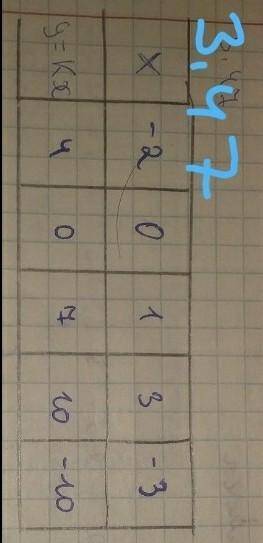 3.47
3.47
x -2 0 1 3 -3
y=kx 4 0 7 10 -10